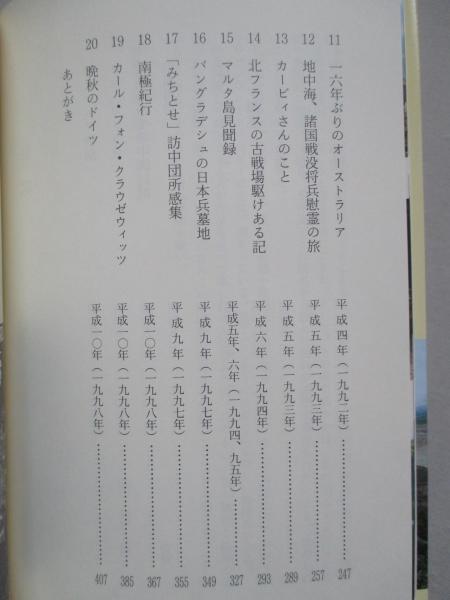 11 一六年ぶりのオーストラリア 平成四年(一九九二年)……………… 247
12 地中海、諸国戦没将兵慰霊の旅 平成五年(一九九三年)……………… 257
13 カービィさんのこと 平成五年(一九九三年)……………… 289
14 北フランスの古戦場駆けある記 平成六年(一九九四年)……………… 293
15 マルタ島見聞録 平成五年、六年(一九九四、九五年)……………… 327
16 バングラデシュの日本兵墓地 平成九年(一九九七年)……………… 349
17 「みちとせ」訪中団所感集 平成九年(一九九七年)……………… 355
18 南極紀行 平成一〇年(一九九八年)……………… 367
19 カール・フォン・クラウゼウィッツ 平成一〇年(一九九八年)……………… 385
20 晩秋のドイツ 平成一〇年(一九九八年)……………… 407
あとがき